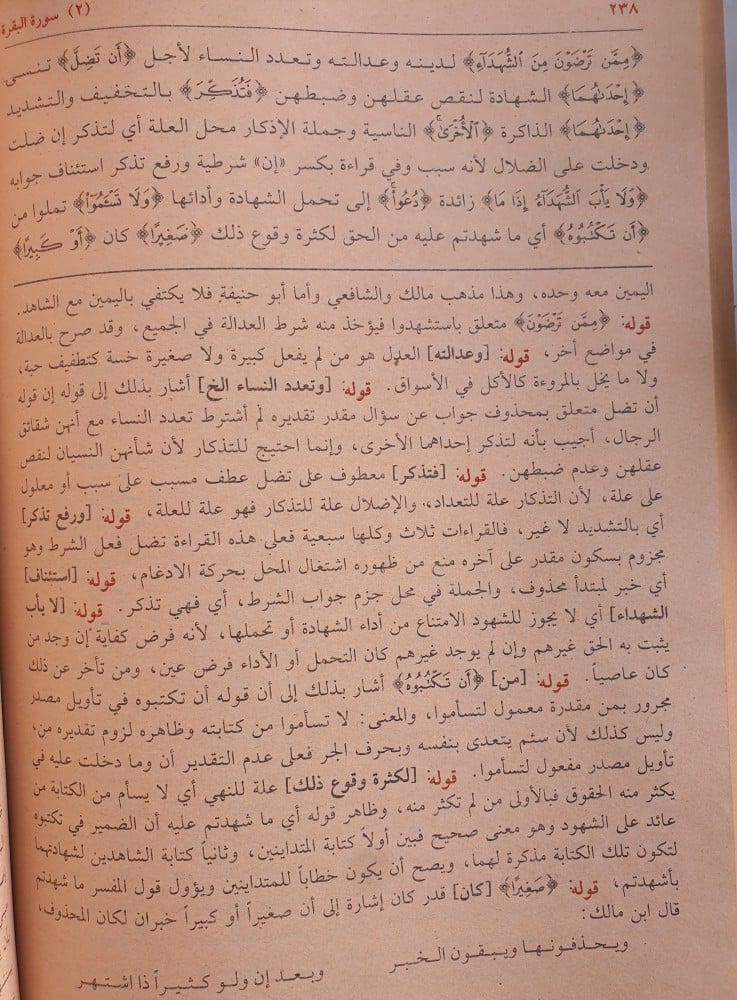 ٢٣٨
(٢) سورة البقرة
﴿مِمَّن تَرْضَوْنَ مِنَ الشُّهَدَآءِ﴾ لدينه وعدالته وتعدد النساء لأجل ﴿أَن تَضِلَّ﴾ تنسى
﴿إِحْدَىٰهُمَا﴾ الشهادة لنقص عقلهن وضبطهن ﴿فَتُذَكِّرَ﴾ بالتخفيف والتشديد
﴿إِحْدَىٰهُمَا﴾ الذاكرة ﴿الْأُخْرَىٰ﴾ الناسية وجملة الإذكار محل العلة أي لتذكر إن ضلت
ودخلت على الضلال لأنه سبب وفي قراءة بكسر «إن» شرطية ورفع تذكر استئناف جوابه
﴿وَلَا يَأْبَ الشُّهَدَآءُ إِذَا مَا﴾ زائدة ﴿دُعُوا۟﴾ إلى تحمل الشهادة وأدائها ﴿وَلَا تَسْـَٔمُوٓا۟﴾ تملوا من
﴿أَن تَكْتُبُوهُ﴾ أي ما شهدتم عليه من الحق لكثرة وقوع ذلك ﴿صَغِيرًا﴾ كان ﴿أَوْ كَبِيرًا﴾
اليمين معه وحده، وهذا مذهب مالك والشافعي وأما أبو حنيفة فلا يكتفي باليمين مع الشاهد.
قوله: ﴿مِمَّن تَرْضَوْنَ﴾ متعلق باستشهدوا فيؤخذ منه شرط العدالة في الجميع، وقد صرح بالعدالة
في مواضع أخر، قوله: [وعدالته] العدل هو من لم يفعل كبيرة ولا صغيرة خسة كتطفيف حبة،
ولا ما يخل بالمروءة كالأكل في الأسواق. قوله: [وتعدد النساء الخ] أشار بذلك إلى قوله إن قوله
أن تضل متعلق بمحذوف جواب عن سؤال مقدر تقديره لم أشترط تعدد النساء مع أنهن شقائق
الرجال، أجيب بأنه لتذكر إحداهما الأخرى، وإنما احتيج للتذكار لأن شأنهن النسيان لنقص
عقلهن وعدم ضبطهن. قوله: [فتذكر] معطوف على تضل عطف مسبب على سبب أو معلول
على علة، لأن التذكار علة للتعداد، والإضلال علة للتذكار فهو علة للعلة، قوله: [ورفع تذكر]
أي بالتشديد لا غير، فالقراءات ثلاث وكلها سبعية فعلى هذه القراءة تضل فعل الشرط وهو
مجزوم بسكون مقدر على آخره منع من ظهوره اشتغال المحل بحركة الادغام، قوله: [استئناف]
أي خبر لمبتدأ محذوف، والجملة في محل جزم جواب الشرط، أي فهي تذكر. قوله: [لا يأب
الشهداء] أي لا يجوز للشهود الامتناع من أداء الشهادة أو تحملها، لأنه فرض كفاية إن وجد من
يثبت به الحق غيرهم وإن لم يوجد غيرهم كان التحمل أو الأداء فرض عين، ومن تأخر عن ذلك
كان عاصياً. قوله: [من] ﴿أَن تَكْتُبُوهُ﴾ أشار بذلك إلى أن قوله أن تكتبوه في تأويل مصدر
مجرور بمن مقدرة معمول لتسأموا، والمعنى: لا تسأموا من كتابته وظاهره لزوم تقديره من،
وليس كذلك لأن سئم يتعدى بنفسه وبحرف الجر فعلى عدم التقدير أن وما دخلت عليه في
تأويل مصدر مفعول لتسأموا. قوله: [لكثرة وقوع ذلك] علة للنهي أي لا يسأم من الكتابة من
يكثر منه الحقوق فبالأولى من لم تكثر منه، وظاهر قوله أي ما شهدتم عليه أن الضمير في تكتبوه
عائد على الشهود وهو معنى صحيح فبين أولاً كتابة المتداينين، وثانياً كتابة الشاهدين لشهادتهما
لتكون تلك الكتابة مذكرة لهما، ويصح أن يكون خطاباً للمتداينين ويؤول قول المفسر ما شهدتم
بأشهدتم، قوله: ﴿صَغِيرًا﴾ [كان] قدر كان إشارة إلى أن صغيراً أو كبيراً خبران لكان المحذوف،
قال ابن مالك:
ويحذفونها ويبقون الخبر
وبعد إن ولو كثيراً ذا اشتهر